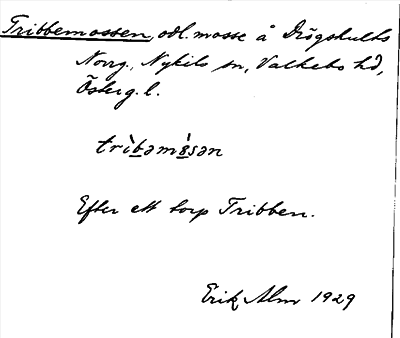 Tribbemossen, odl. mosse å Högshults
Norrg., Nykils sn, Valkebo hd,
Österg. l.
trìbəmòsən
Efter ett torp Tribben.
Erik Alm 1929